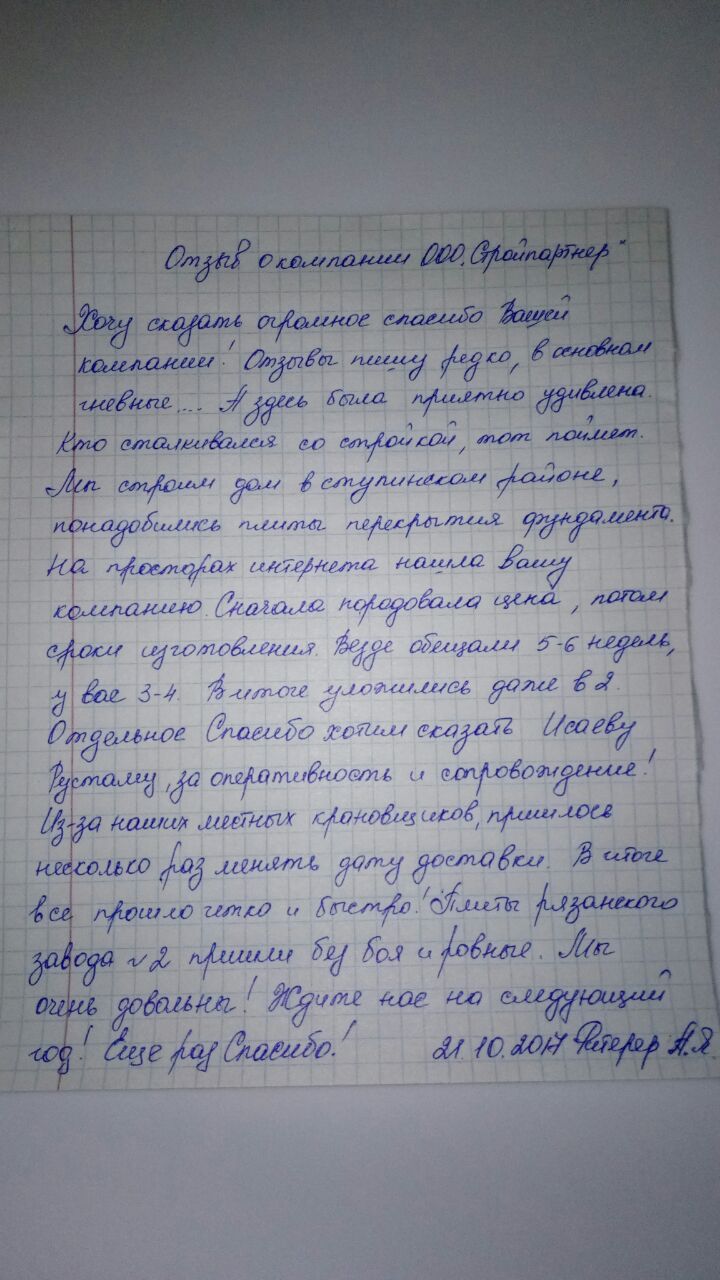 Отзыв о компании ООО „Стройпартнер"
Хочу сказать огромное спасибо Вашей
компании! Отзывы пишу редко, в основном
гневные.... А здесь была приятно удивлена.
Кто сталкивался со стройкой, тот поймет.
Мы строим дом в ступинском районе,
понадобились плиты перекрытия фундамента.
На просторах интернета нашла вашу
компанию. Сначала породовала цена, потом
сроки изготовления. Везде обещали 5-6 недель,
у вас 3-4. В итоге уложились даже в 2.
Отдельное Спасибо хотим сказать Исаеву
Рустаму, за оперативность и сопровождение!
Из-за наших местных крановщиков, пришлось
несколько раз менять дату доставки. В итоге
все прошло четко и быстро! Плиты рязанского
завода №2 пришли без боя и ровные. Мы
очень довольны! Ждите нас на следующий
год! Еще раз Спасибо! 21.10.2017 А.Я.